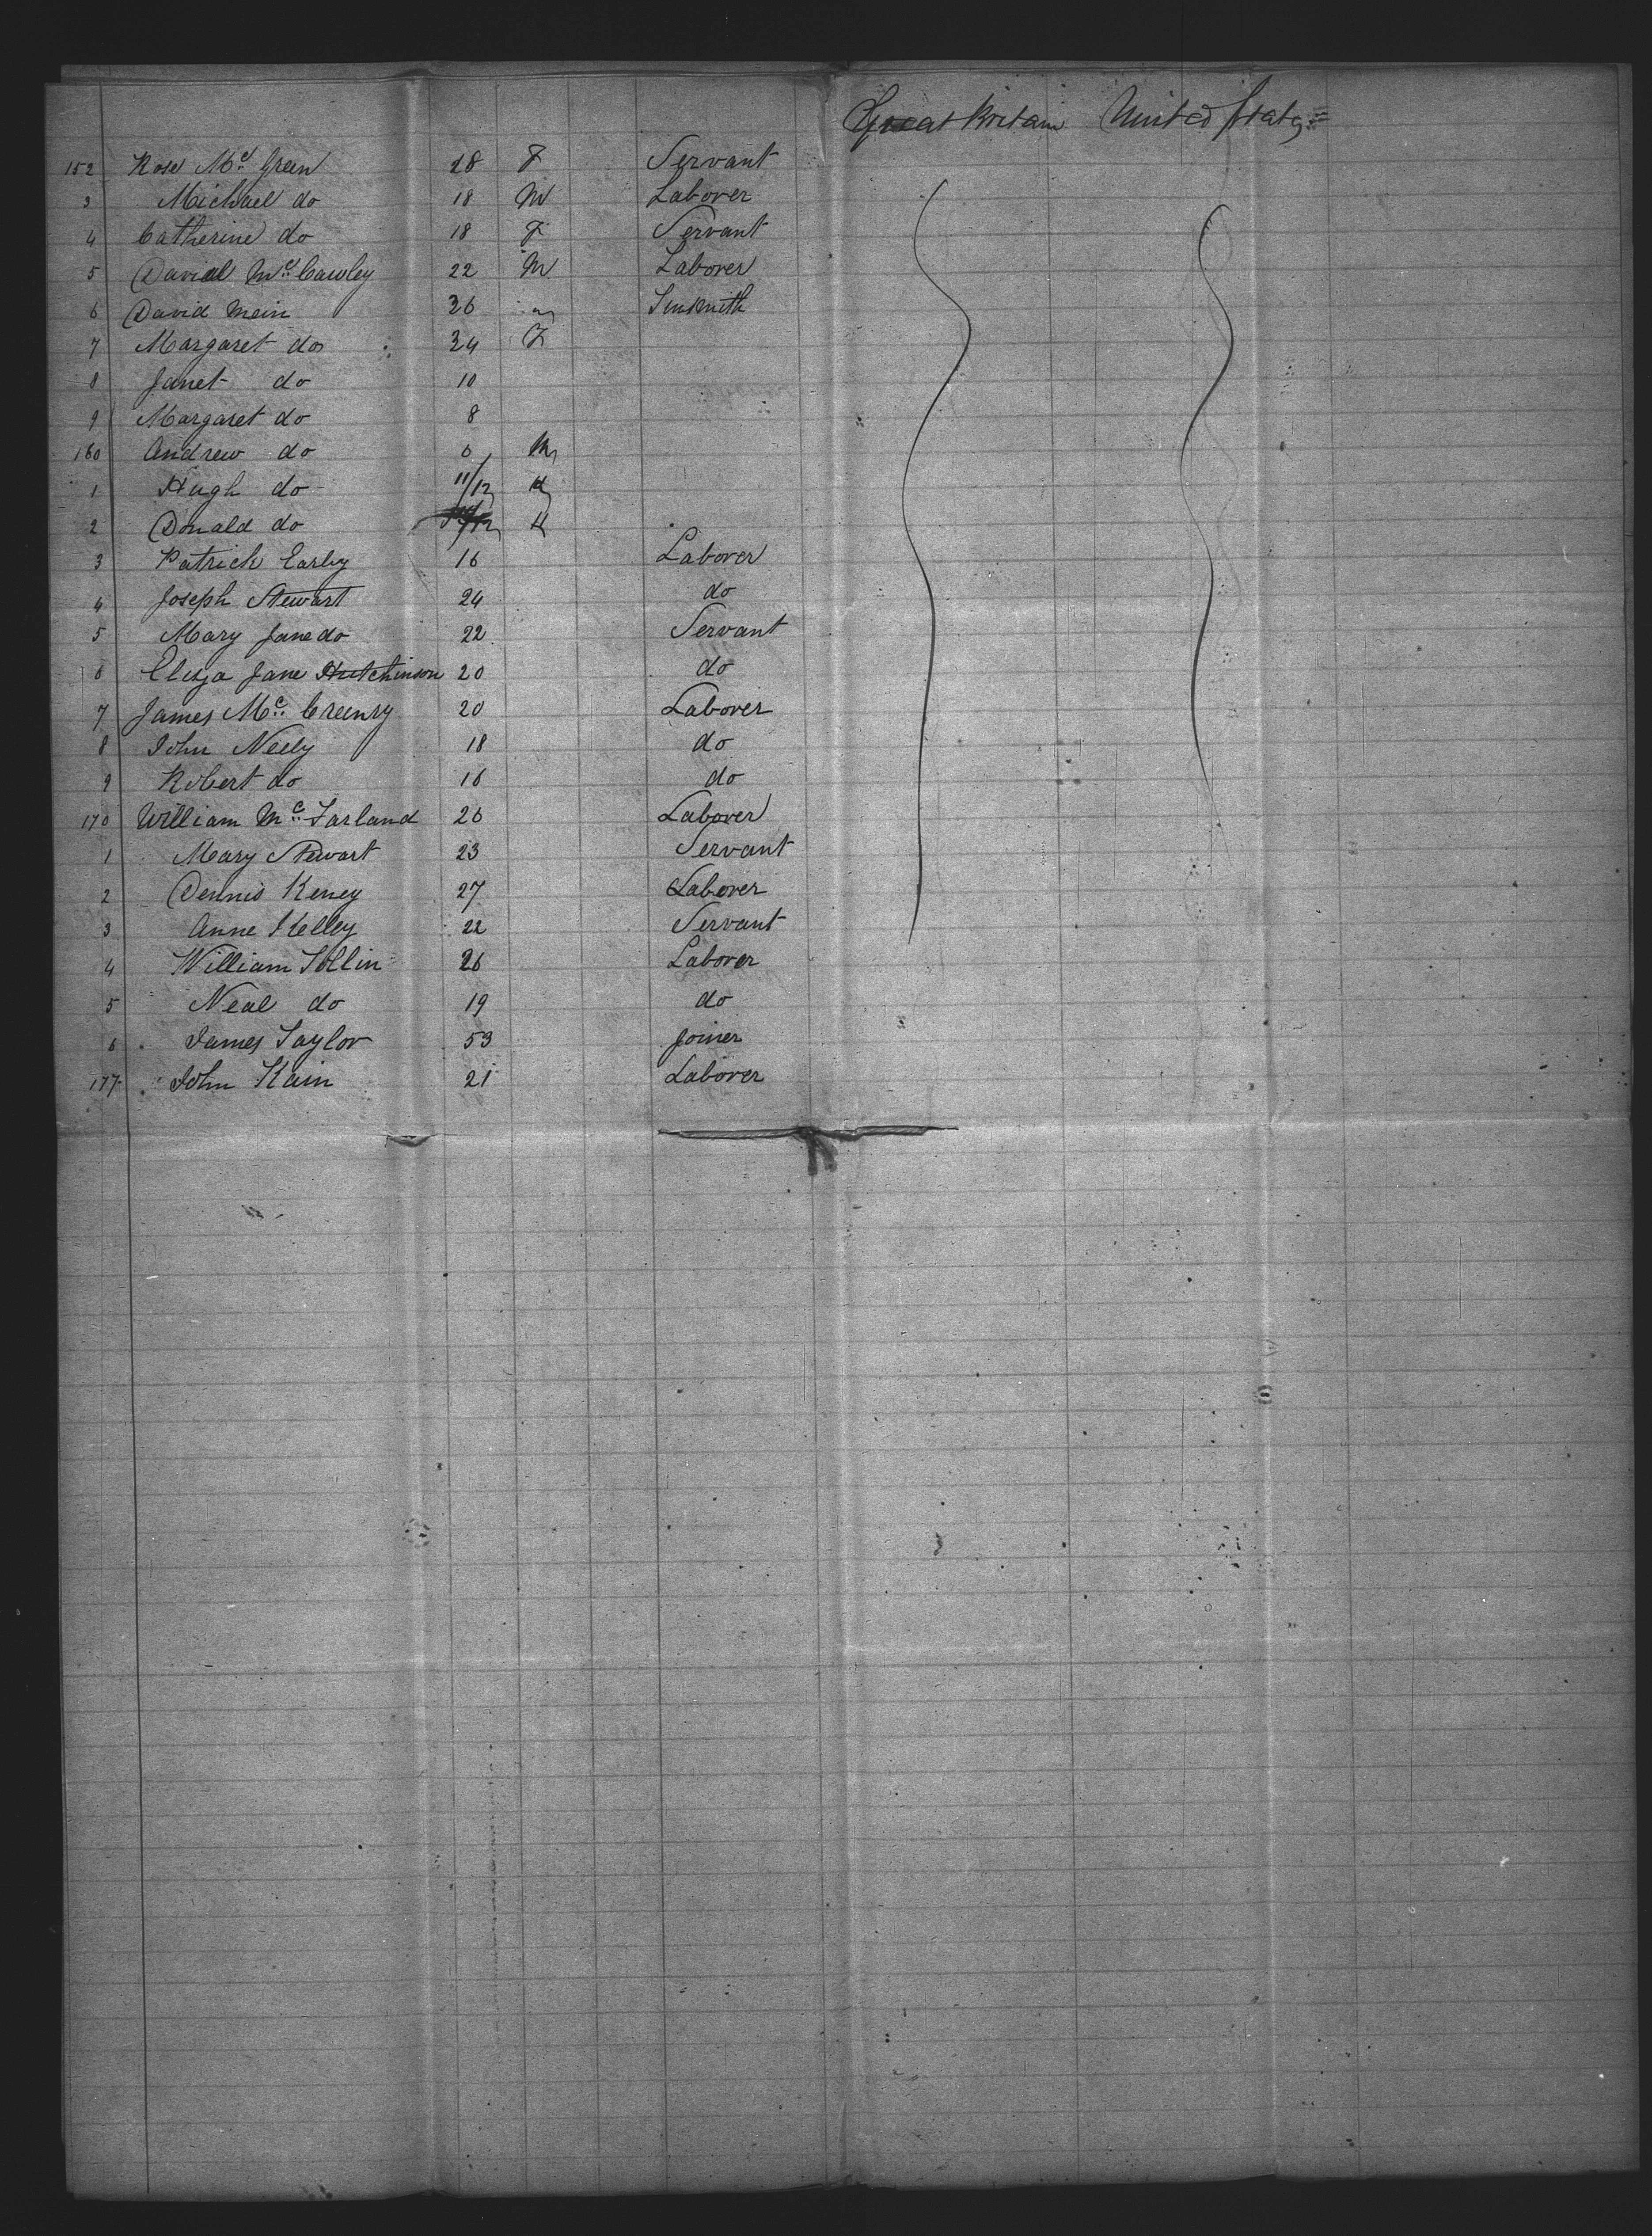 Great Britain United States
152 Rose Mc. Green 28 F Servant
3 Michael do 18 M Laborer
4 Catherine do 18 F Servant
5 David Mc. Cawley 22 M Laborer
6 David Mein 36 m Tinsmith
7 Margaret do 34 F
8 Janet do 10
9 Margaret do 8
160 Andrew do 6 M
1 Hugh do 11/12
2 Donald do
3 Patrick Early 16 Laborer
4 Joseph Stewart 24 do
5 Mary Jane do 22 Servant
6 Eliza Jane Hutchinson 20 do
7 James Mc. Creensy 20 Laborer
8 John Neely 18 do
9 Robert do 16 do
170 William Mc. Farland 26 Laborer
1 Mary Stewart 23 Servant
2 Dennis Keney 27 Laborer
3 Anne Kelley 22 Servant
4 William 26 Laborer
5 Neal do 19 do
6 James Taylor 53 Joiner
177 John Kain 21 Laborer